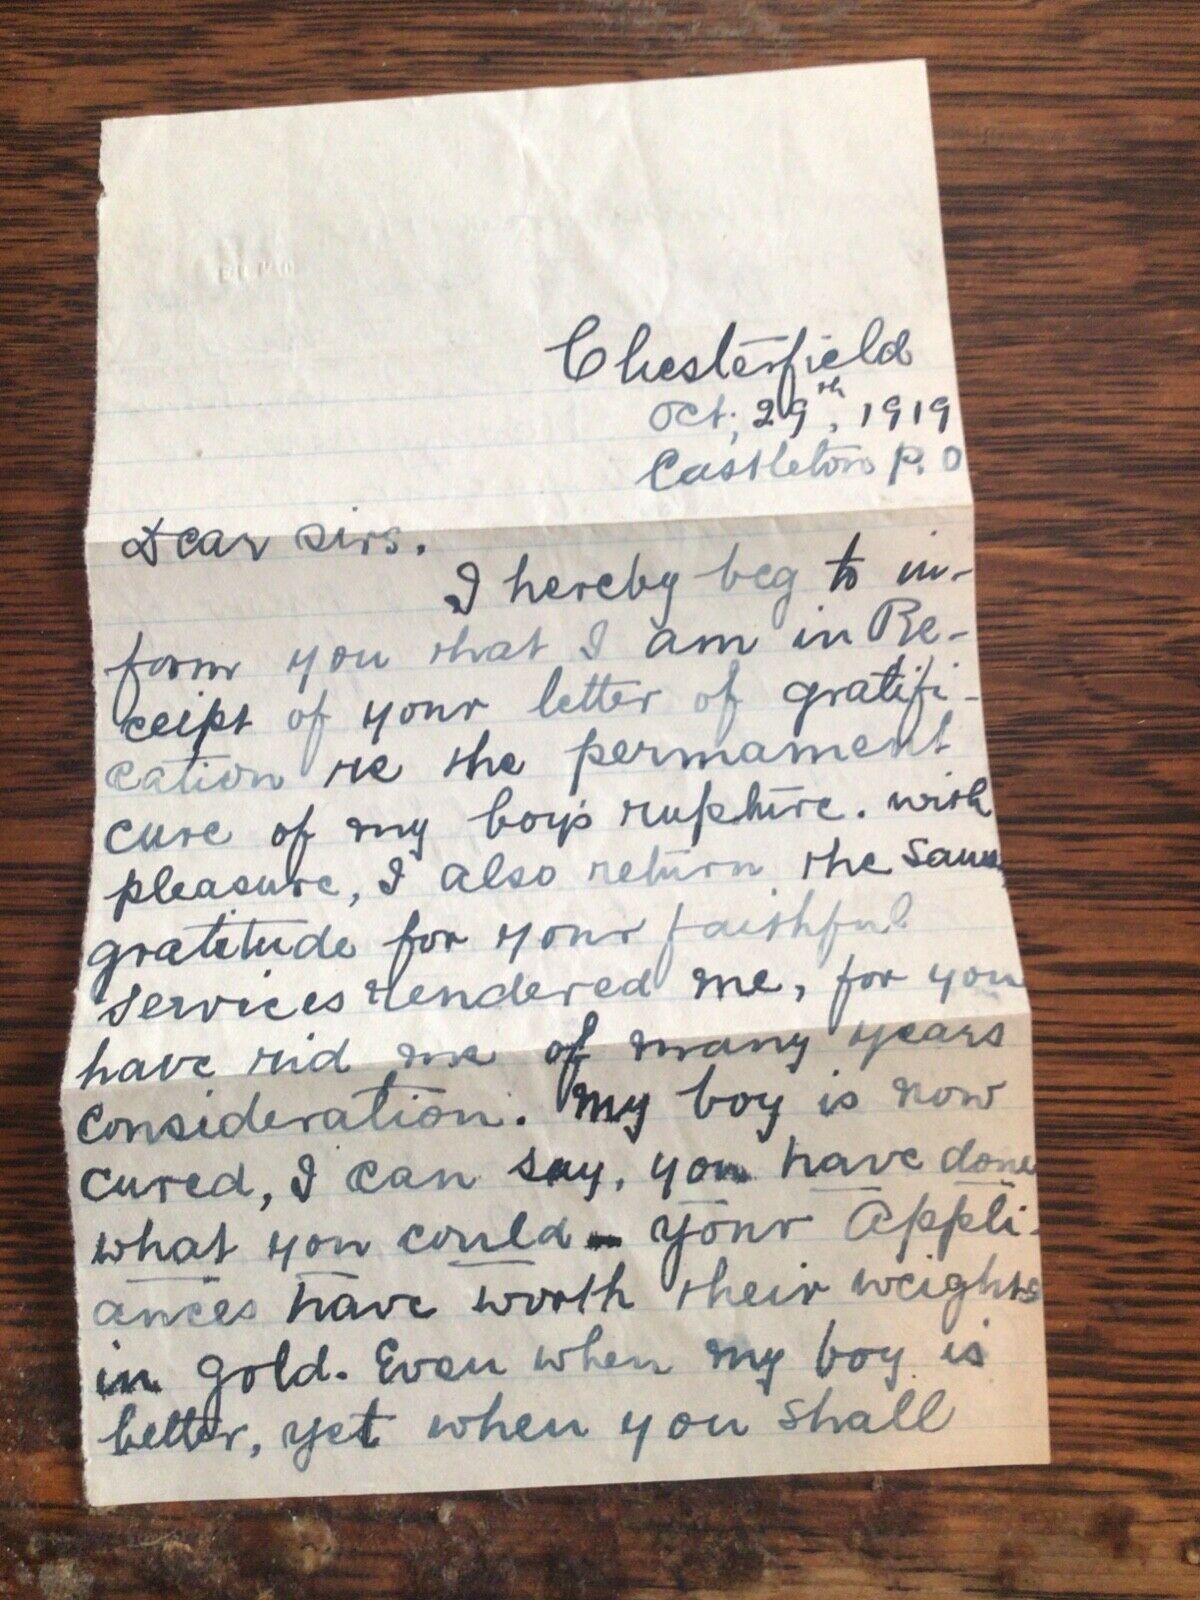 Chesterfield
Oct; 29th, 1919
Castleton P.O
Dear Sirs.
I hereby beg to in-
form you that I am in Re-
ceipt of your letter of gratifi-
cation re the permament
cure of my boy's rupture. with
pleasure, I also return the same
gratitude for your faithful
services rendered me, for you
have rid me of many years
consideration. My boy is now
cured, I can say, you have done
what you could - your Appli-
ances have worth their weights
in gold. Even when my boy is
better, yet when you shall